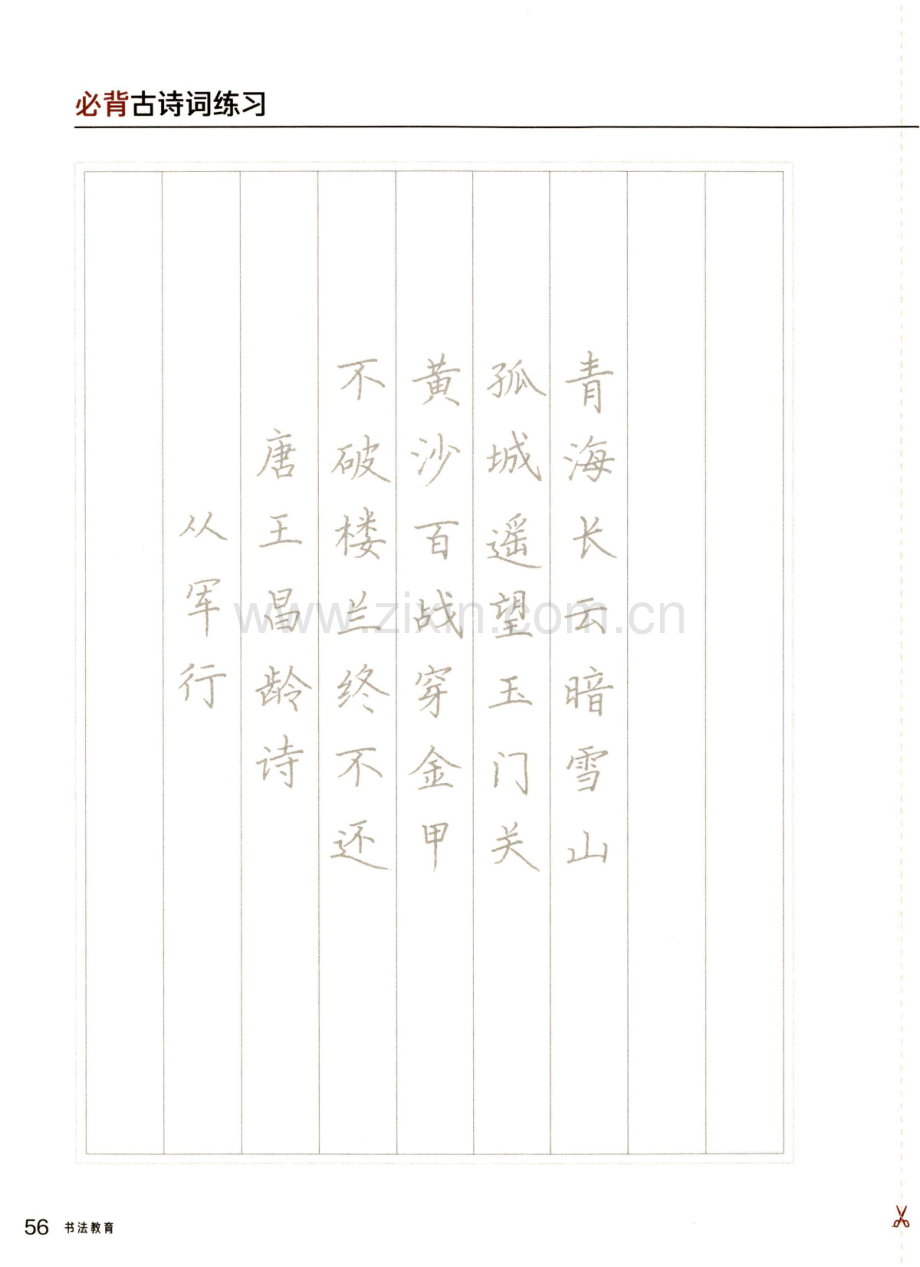 必背古诗词练习
青海长云暗雪山
孤城遥望玉门关
黄沙百战穿金甲
不破楼兰终不还
唐王昌龄诗
从军行
www.zixin.com.cn
56 书法教育